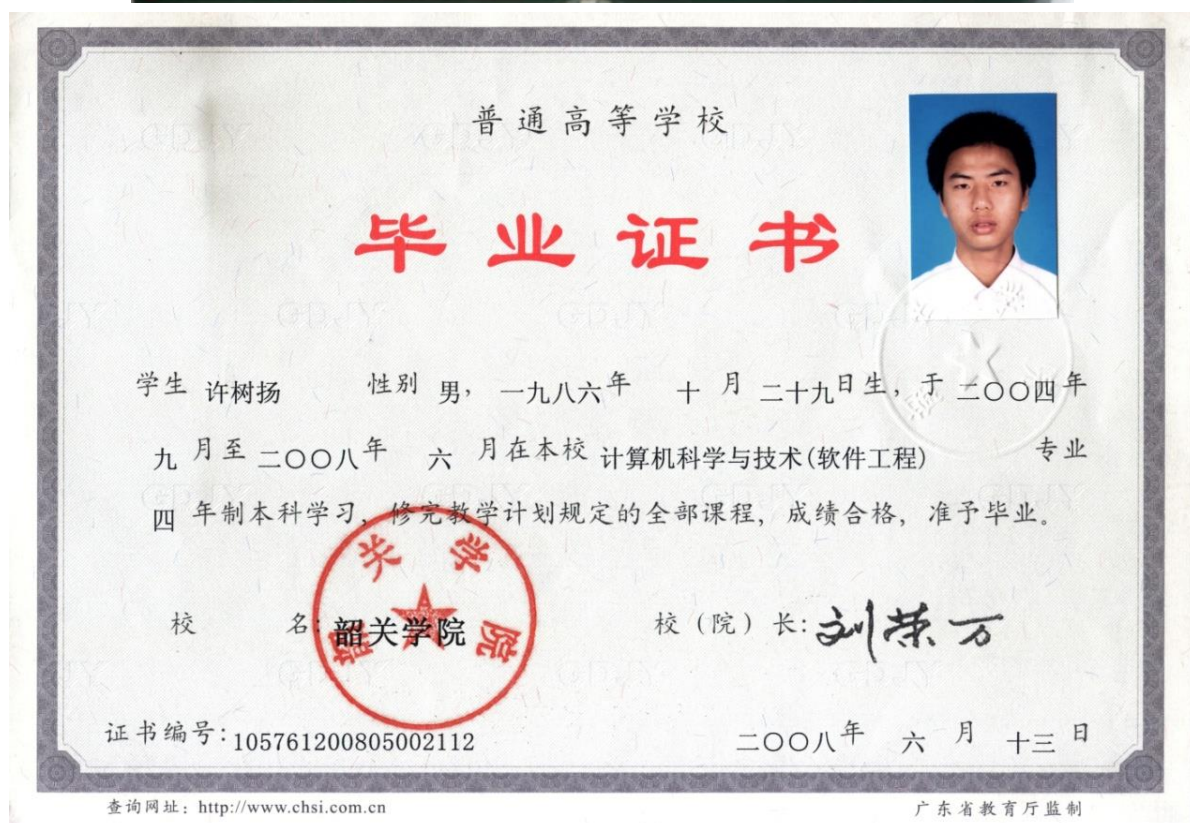 普通高等学校
毕业证书
学生 许树扬 性别 男，一九八六年 十月二十九日生，于 二〇〇四年
九月至二〇〇八年 六月在本校 计算机科学与技术(软件工程) 专业
四年制本科学习，修完教学计划规定的全部课程，成绩合格，准予毕业。
校 名：韶关学院 校（院）长：刘荣万
韶关学院
证书编号：105761200805002112 二〇〇八年 六月 十三日
查询网址：http://www.chsi.com.cn 广东省教育厅监制